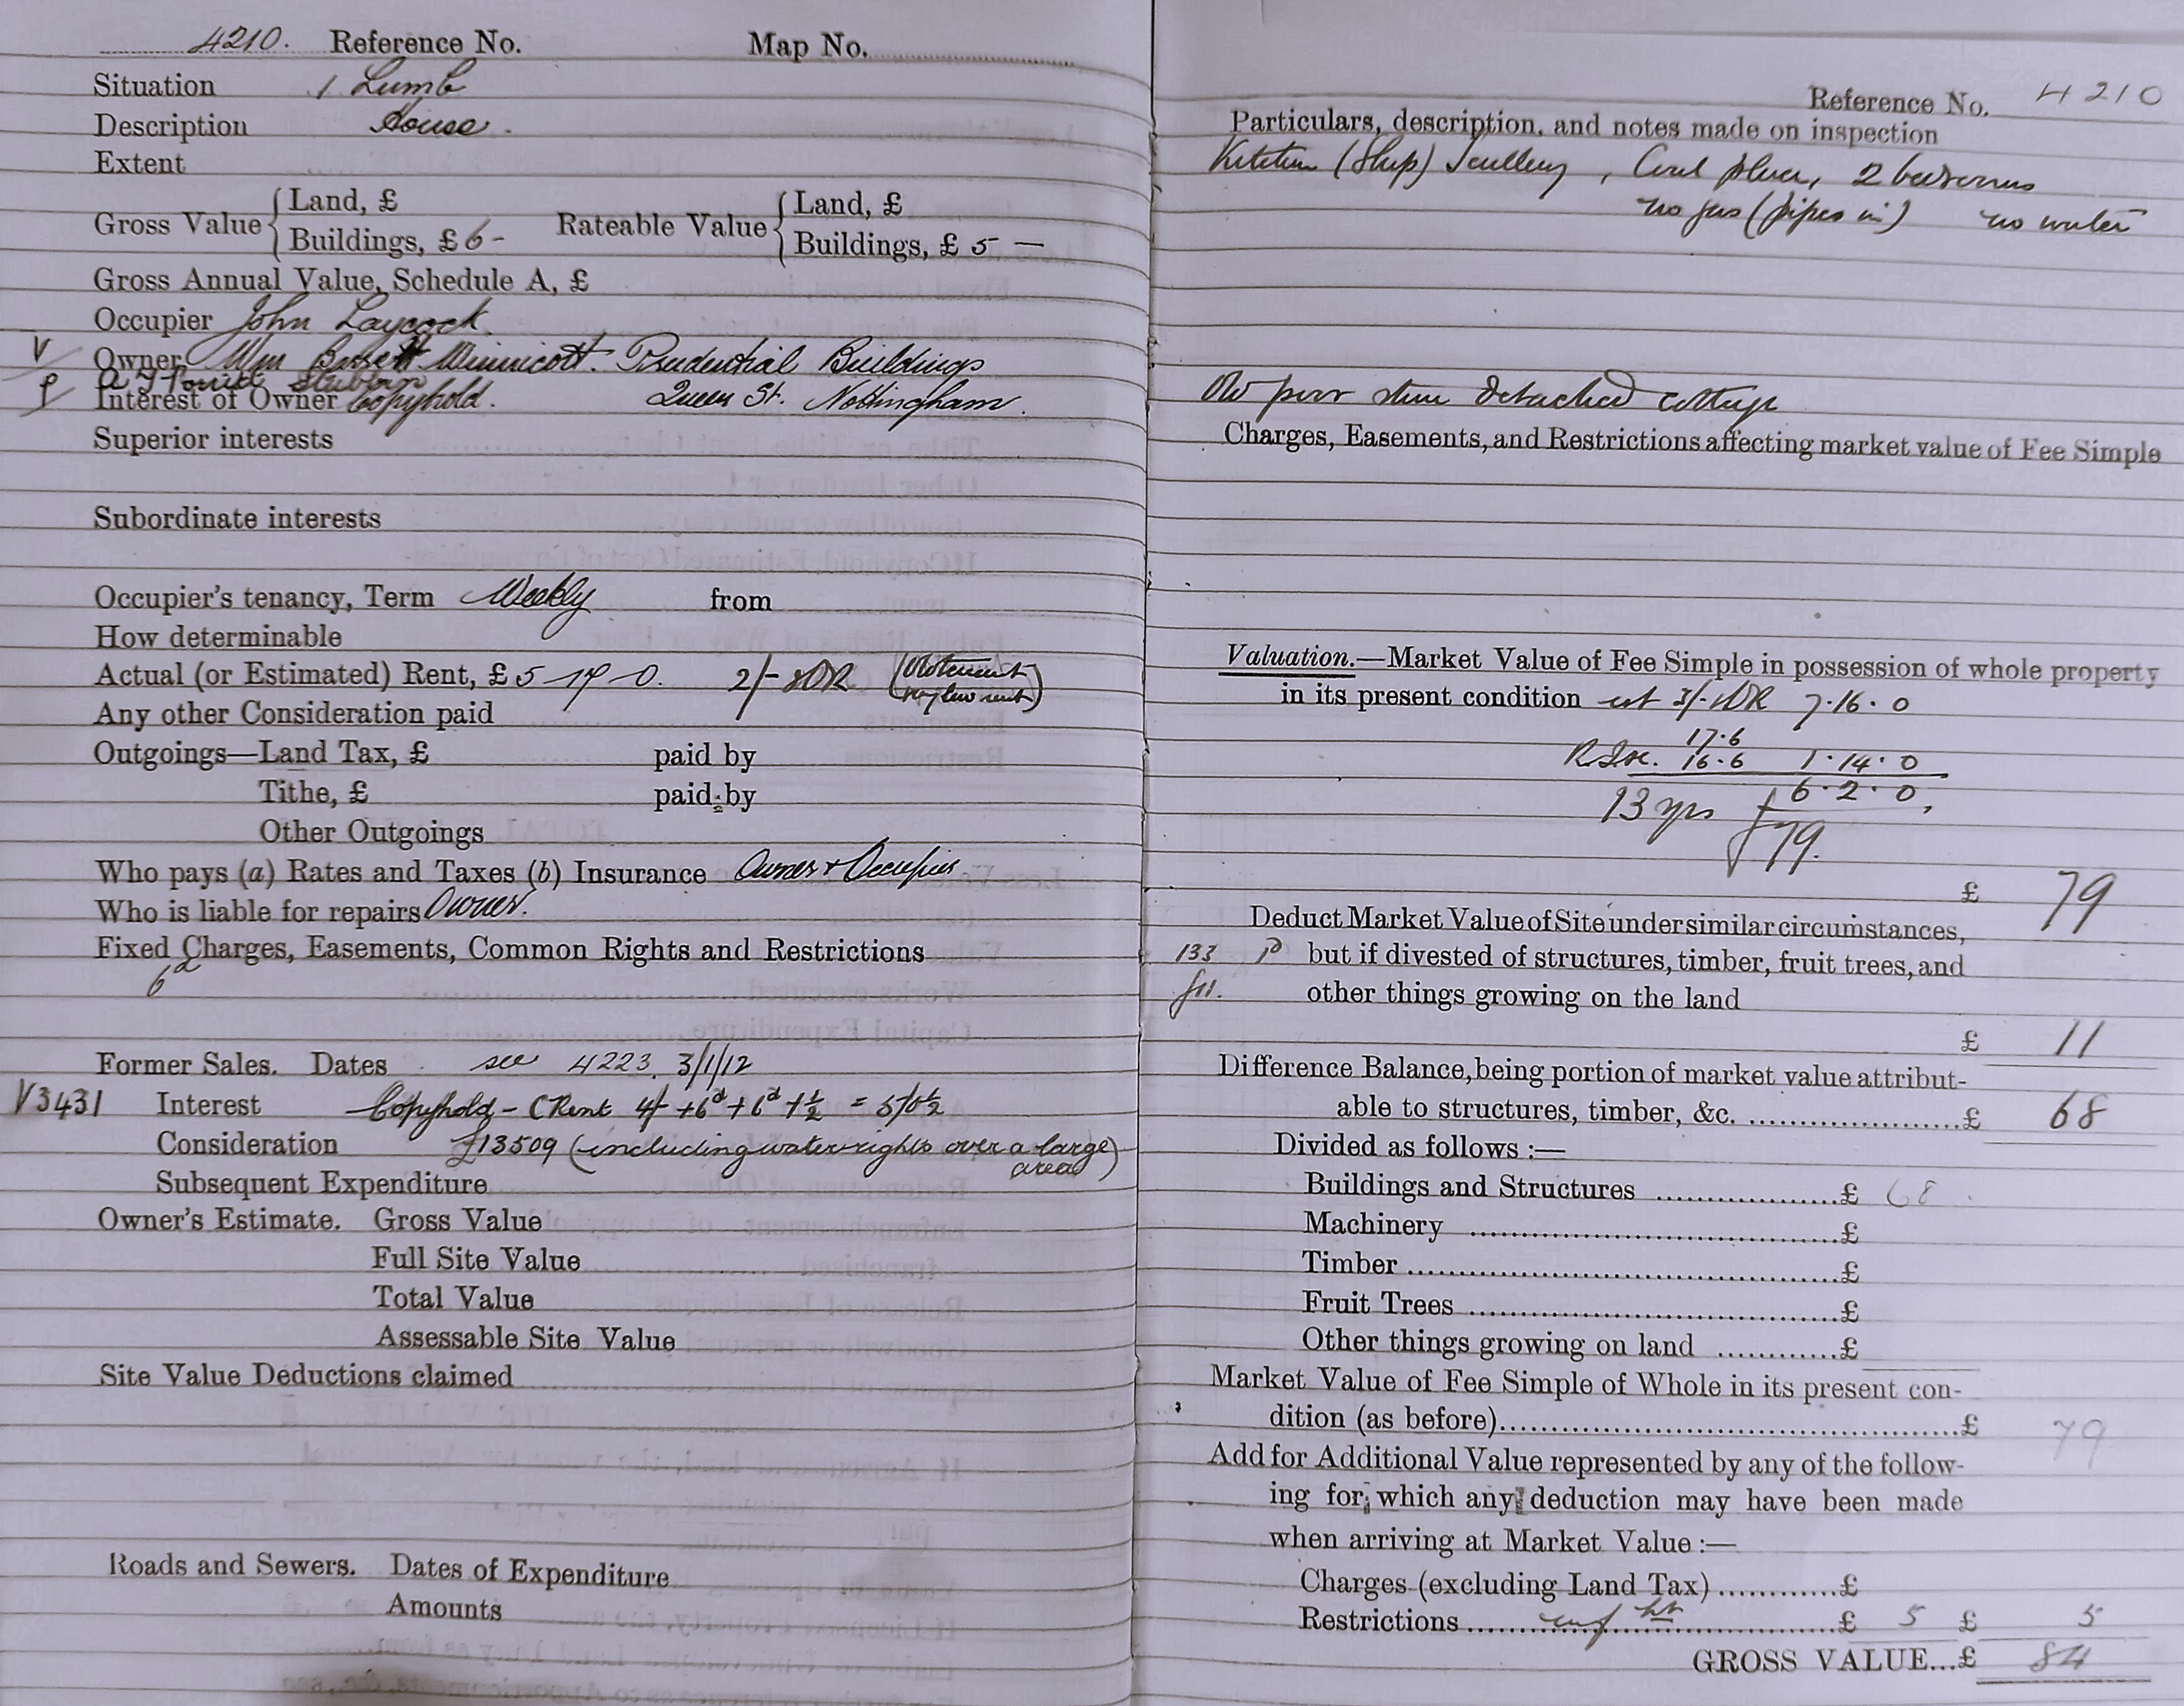 4210. Reference No. Map No.
Situation 1 Lumb
Description House.
Extent
Gross Value { Land, £
Buildings, £ 6 -
Rateable Value { Land, £
Buildings, £ 5 —
Gross Annual Value, Schedule A, £
Occupier John Laycock.
V Owner Wm Winnicott. Prudential Buildings
Stubbins
Interest of Owner Copyhold. Queen St. Nottingham.
Superior interests
Subordinate interests
Occupier's tenancy, Term Weekly from
How determinable
Actual (or Estimated) Rent, £ 5 - 19 - 0. 2/- DR
Any other Consideration paid
Outgoings—Land Tax, £ paid by
Tithe, £ paid by
Other Outgoings
Who pays (a) Rates and Taxes (b) Insurance Owner & Occupier
Who is liable for repairs Owner.
Fixed Charges, Easements, Common Rights and Restrictions
6d
Former Sales. Dates see 4223. 3/1/12
V3431 Interest Copyhold - C Rent 4/- + 6d + 6d + ½ = 5/0½
Consideration £13509 (including water rights over a large area)
Subsequent Expenditure
Owner's Estimate. Gross Value
Full Site Value
Total Value
Assessable Site Value
Site Value Deductions claimed
Roads and Sewers. Dates of Expenditure
Amounts
Reference No. 4210
Particulars, description, and notes made on inspection
Kitchen (Slup) Scullery, Coal place, 2 bedrooms
no gas (pipes in) no water
Old poor stone detached cottage
Charges, Easements, and Restrictions affecting market value of Fee Simple
Valuation.—Market Value of Fee Simple in possession of whole property
in its present condition est 3/- DR 7.16.0
17.6
R Ins. 16.6 1.14.0
6.2.0
13 yrs
£79.
£ 79
Deduct Market Value of Site under similar circumstances,
133 but if divested of structures, timber, fruit trees, and
£11. other things growing on the land
£ 11
Difference Balance, being portion of market value attribut-
able to structures, timber, &c. £ 68
Divided as follows :—
Buildings and Structures £ 68.
Machinery £
Timber £
Fruit Trees £
Other things growing on land £
Market Value of Fee Simple of Whole in its present con-
dition (as before) £ 79
Add for Additional Value represented by any of the follow-
ing for which any deduction may have been made
when arriving at Market Value :—
Charges (excluding Land Tax) £
Restrictions £ 5 £ 5
GROSS VALUE...£ 84